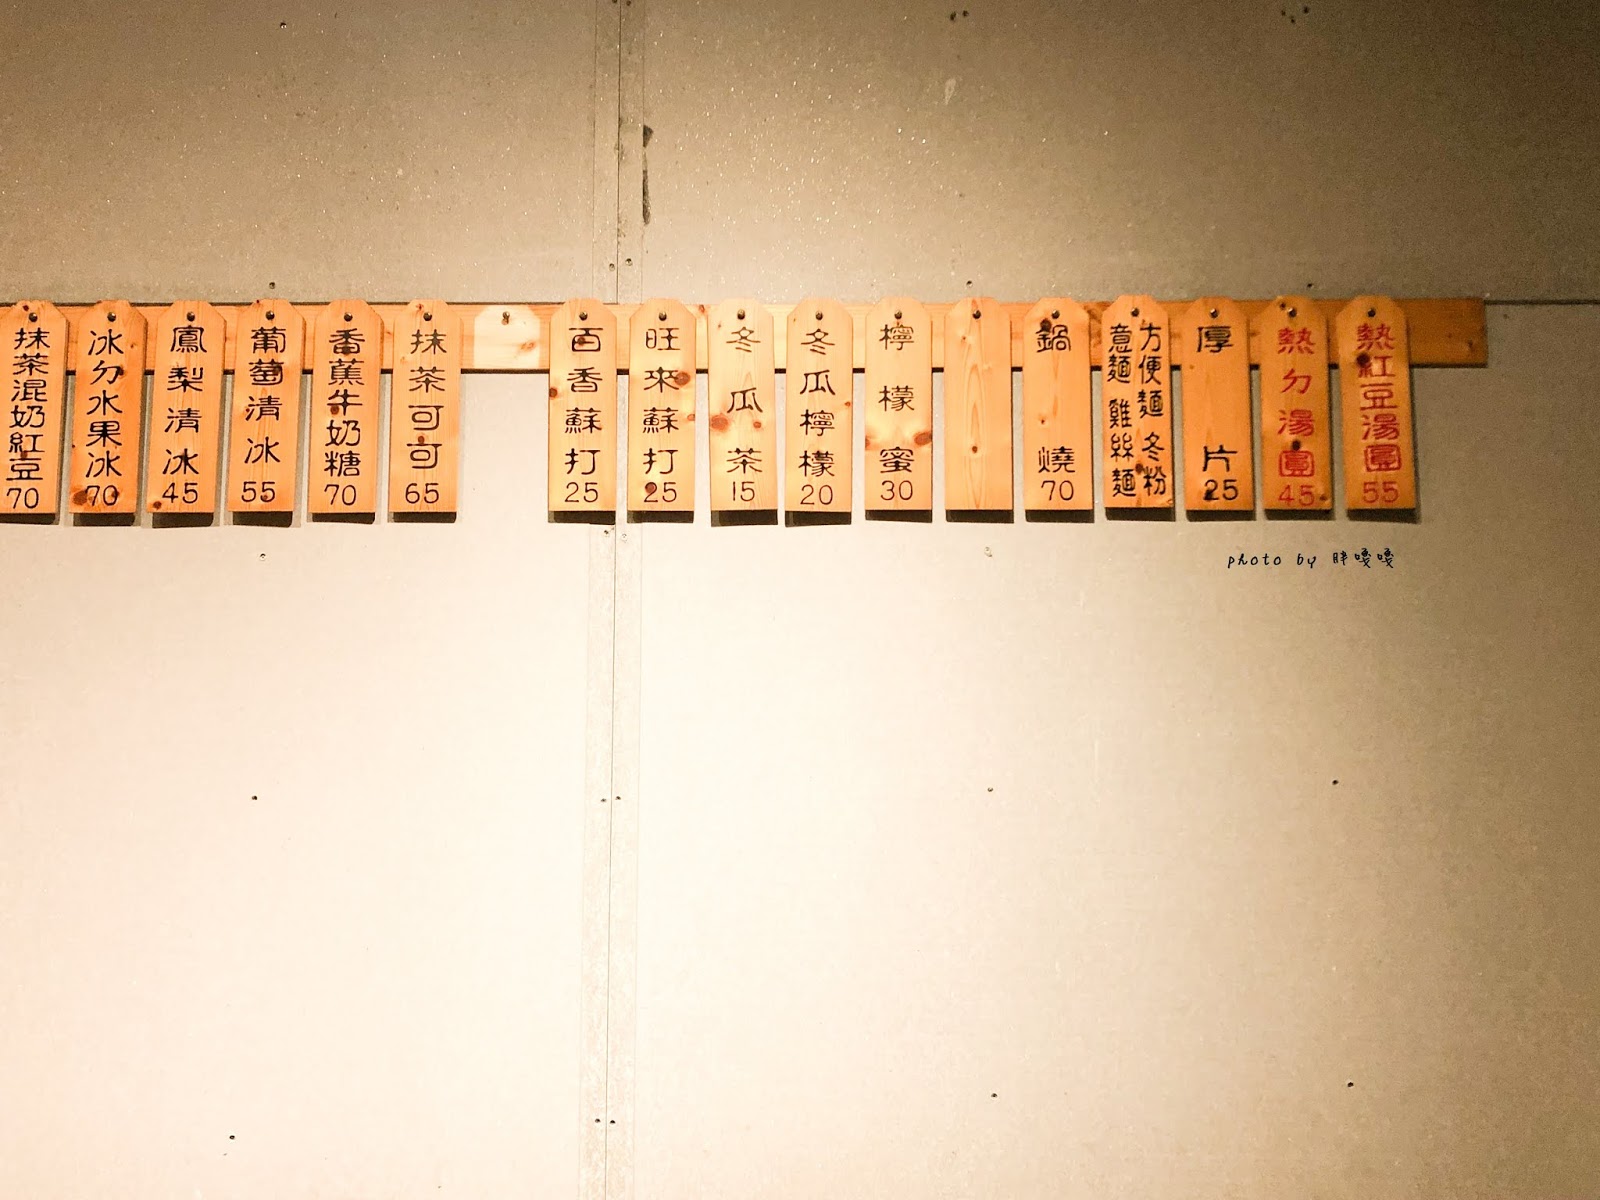 抹茶混奶紅豆70
冰ㄉ水果冰70
鳳梨清冰45
葡萄清冰55
香蕉牛奶糖70
抹茶可可65
百香蘇打25
旺來蘇打25
冬瓜茶15
冬瓜檸檬20
檸檬蜜30
鍋燒70
方便麵 冬粉
意麵 雞絲麵
厚片25
熱ㄉ湯圓45
熱紅豆湯圓55
photo by 胖嘎嘎